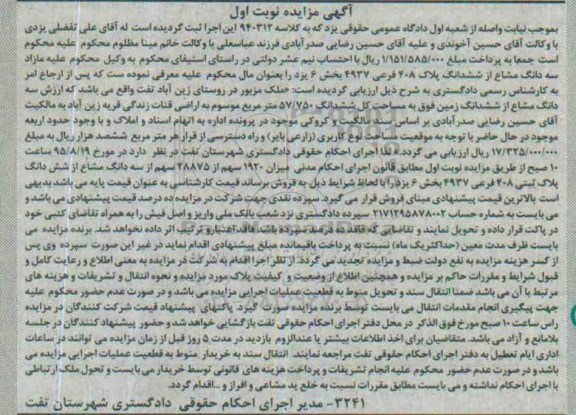 آگهی مزایده نوبت اول
بموجب نیابت واصله از شعبه اول دادگاه عمومی حقوقی یزد که به کلاسه ۹۴۰۳۱۲ این اجرا ثبت گردیده است له آقای علی تفضلی یزدی
با وکالت آقای حسین آخوندی و علیه آقای حسین رضایی صدرآبادی فرزند عباسعلی با وکالت خانم مینا مظلوم محکوم علیه محکوم
است جمعا به پرداخت مبلغ ۱/۱۵۱/۵۸۵/۰۰۰ ریال با احتساب نیم عشر دولتی در راستای استیفای محکوم به وکیل محکوم علیه مازاد
سه دانگ مشاع از ششدانگ پلاک ۴۰۸ فرعی ۴۹۳۷ بخش ۶ یزد را بعنوان مال محکوم علیه معرفی نموده ست که پس از ارجاع امر
به کارشناس رسمی دادگستری به شرح ذیل ارزیابی گردیده است: «ملک مزبور در روستای زین آباد تفت واقع می باشد که ارزش سه
دانگ مشاع از ششدانگ زمین فوق به مساحت کل ششدانگ ۵۷/۷۵۰ متر مربع موسوم به اراضی قنات زندگی قریه زین آباد به مالکیت
آقای حسین رضایی صدرآبادی بر اساس سند مالکیت و کروکی موجود در پرونده اداره به اتهام اسناد و املاک و با وجود حدود اربعه
موجود در حال حاضر با توجه به موقعیت مساحت نوع کاربری (زارعی بایر) و راه دسترسی از قرار هر متر مربع ششصد هزار ریال به مبلغ
۱۷/۳۲۵/۰۰۰/۰۰۰ ریال ارزیابی می گردد.» لذا اجرای احکام حقوقی دادگستری شهرستان تفت در نظر دارد در مورخ ۹۵/۸/۱۹ ساعت
۱۰ صبح از طریق مزایده نوبت اول مطابق قانون اجرای احکام مدنی میزان ۱۹۲۰ سهم از ۲۸۸۷۵ سهم از سه دانگ مشاع از شش دانگ
پلاک ثبتی ۴۰۸ فرعی ۴۹۳۷ بخش ۶ یزد را با لحاظ شرایط ذیل به فروش برساند قیمت کارشناسی به عنوان قیمت پایه می باشد بدیهی
است بالاترین قیمت پیشنهادی مبنای فروش قرار می گیرد. سپرده نقدی جهت شرکت در مزایده ده درصد قیمت پیشنهادی می باشد و
می بایست به شماره حساب ۲۱۷۱۲۹۵۸۷۸۰۰۲ سپرده دادگستری نزد شعب بانک ملی واریز و اصل فیش را به همراه تقاضای کتبی خود
در پاکت قرار داده و تحویل نمایند و تقاضایی که فاقد ده درصد سپرده باشد فاقد اعتبار و ترتیب اثر داده نخواهد شد. برنده مزایده می
بایست ظرف مدت معین (حداکثر یک ماه) نسبت به پرداخت باقیمانده مبلغ پیشنهادی اقدام نماید در غیر این صورت سپرده وی پس
از کسر هزینه مزایده به نفع دولت ضبط و مزایده تجدید می گردد. از نظر اجرا اقدام به شرکت در مزایده به معنی اطلاع و رعایت کامل و
قبول شرایط و مقررات حاکم بر مزایده و همچنین اطلاع از وضعیت و کیفیت پلاک مورد مزایده و نحوه انتقال و تشریفات و هزینه های
مرتبط با آن می باشد ضمنا انتقال سند و تحویل منوط به قطعیت عملیات اجرایی مزایده می باشد و در صورت عدم حضور محکوم علیه
جهت پیگیری انجام مقدمات انتقال می بایست توسط برنده مزایده صورت گیرد. پاکتهای پیشنهاد قیمت شرکت کنندگان در مزایده
راس ساعت ۱۰ صبح مورخ فوق الذکر در محل دفتر اجرای احکام حقوقی تفت بازگشایی خواهد شد و حضور پیشنهاد کنندگان در جلسه
بلامانع و آزاد می باشد. متقاضیان برای اخذ اطلاعات بیشتر یا عندالزوم بازدید در مدت ۵ روز قبل از زمان مزایده می توانند در ساعات
اداری ایام تعطیل به دفتر اجرای احکام حقوقی تفت مراجعه نمایند. انتقال سند به خریدار منوط به قطعیت عملیات اجرایی مزایده می
باشد و در صورت عدم حضور محکوم علیه انجام تشریفات و پرداخت هزینه های قانونی توسط خریدار می بایست و تحول ملک ارتباطی
با اجرای احکام نداشته و می بایست مطابق مقررات نسبت به خلع ید مشاعی و افراز و ...اقدام گردد.
۳۲۴۱- مدیر اجرای احکام حقوقی دادگستری شهرستان تفت